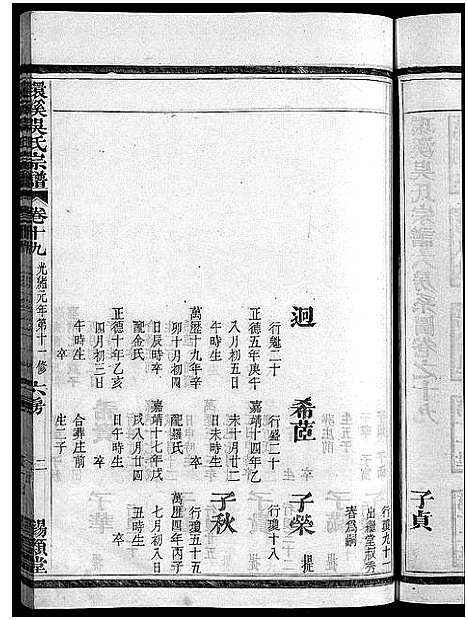 子貞
行瓊九十一
出繼堂叔秀
春爲嗣
迥
行魁二十
正德五年庚午
八月初五日
午時生
萬歷十九年辛
卯十月初四
日辰時卒
配金氏
正德十年乙亥
四月初三日
午時生
合彝庄前
生二子
希茝
行盛二十
嘉靖十四年乙
未十月二十
日未時生
卒
配羅氏
嘉靖十七年戊
戌八月廿四
日午時生
卒
子榮
提
行瓊十八
子秋
提
行瓊五十五
萬歷四年丙子
七月初八日
丑時生
環溪吳氏宗譜
卷十九
光緒元年第十一修
六房
二
錫類堂